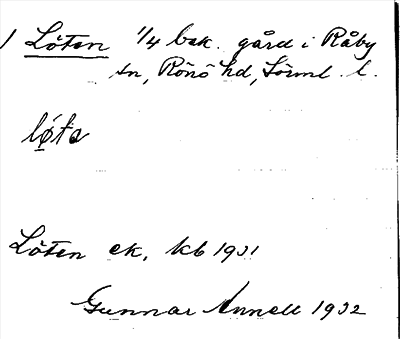 1 Löten 1/4 bek. gård i Råby
sn, Rönö hd, Sörml. l.
løta
Löten ek, kb 1931
Gunnar Annell 1932